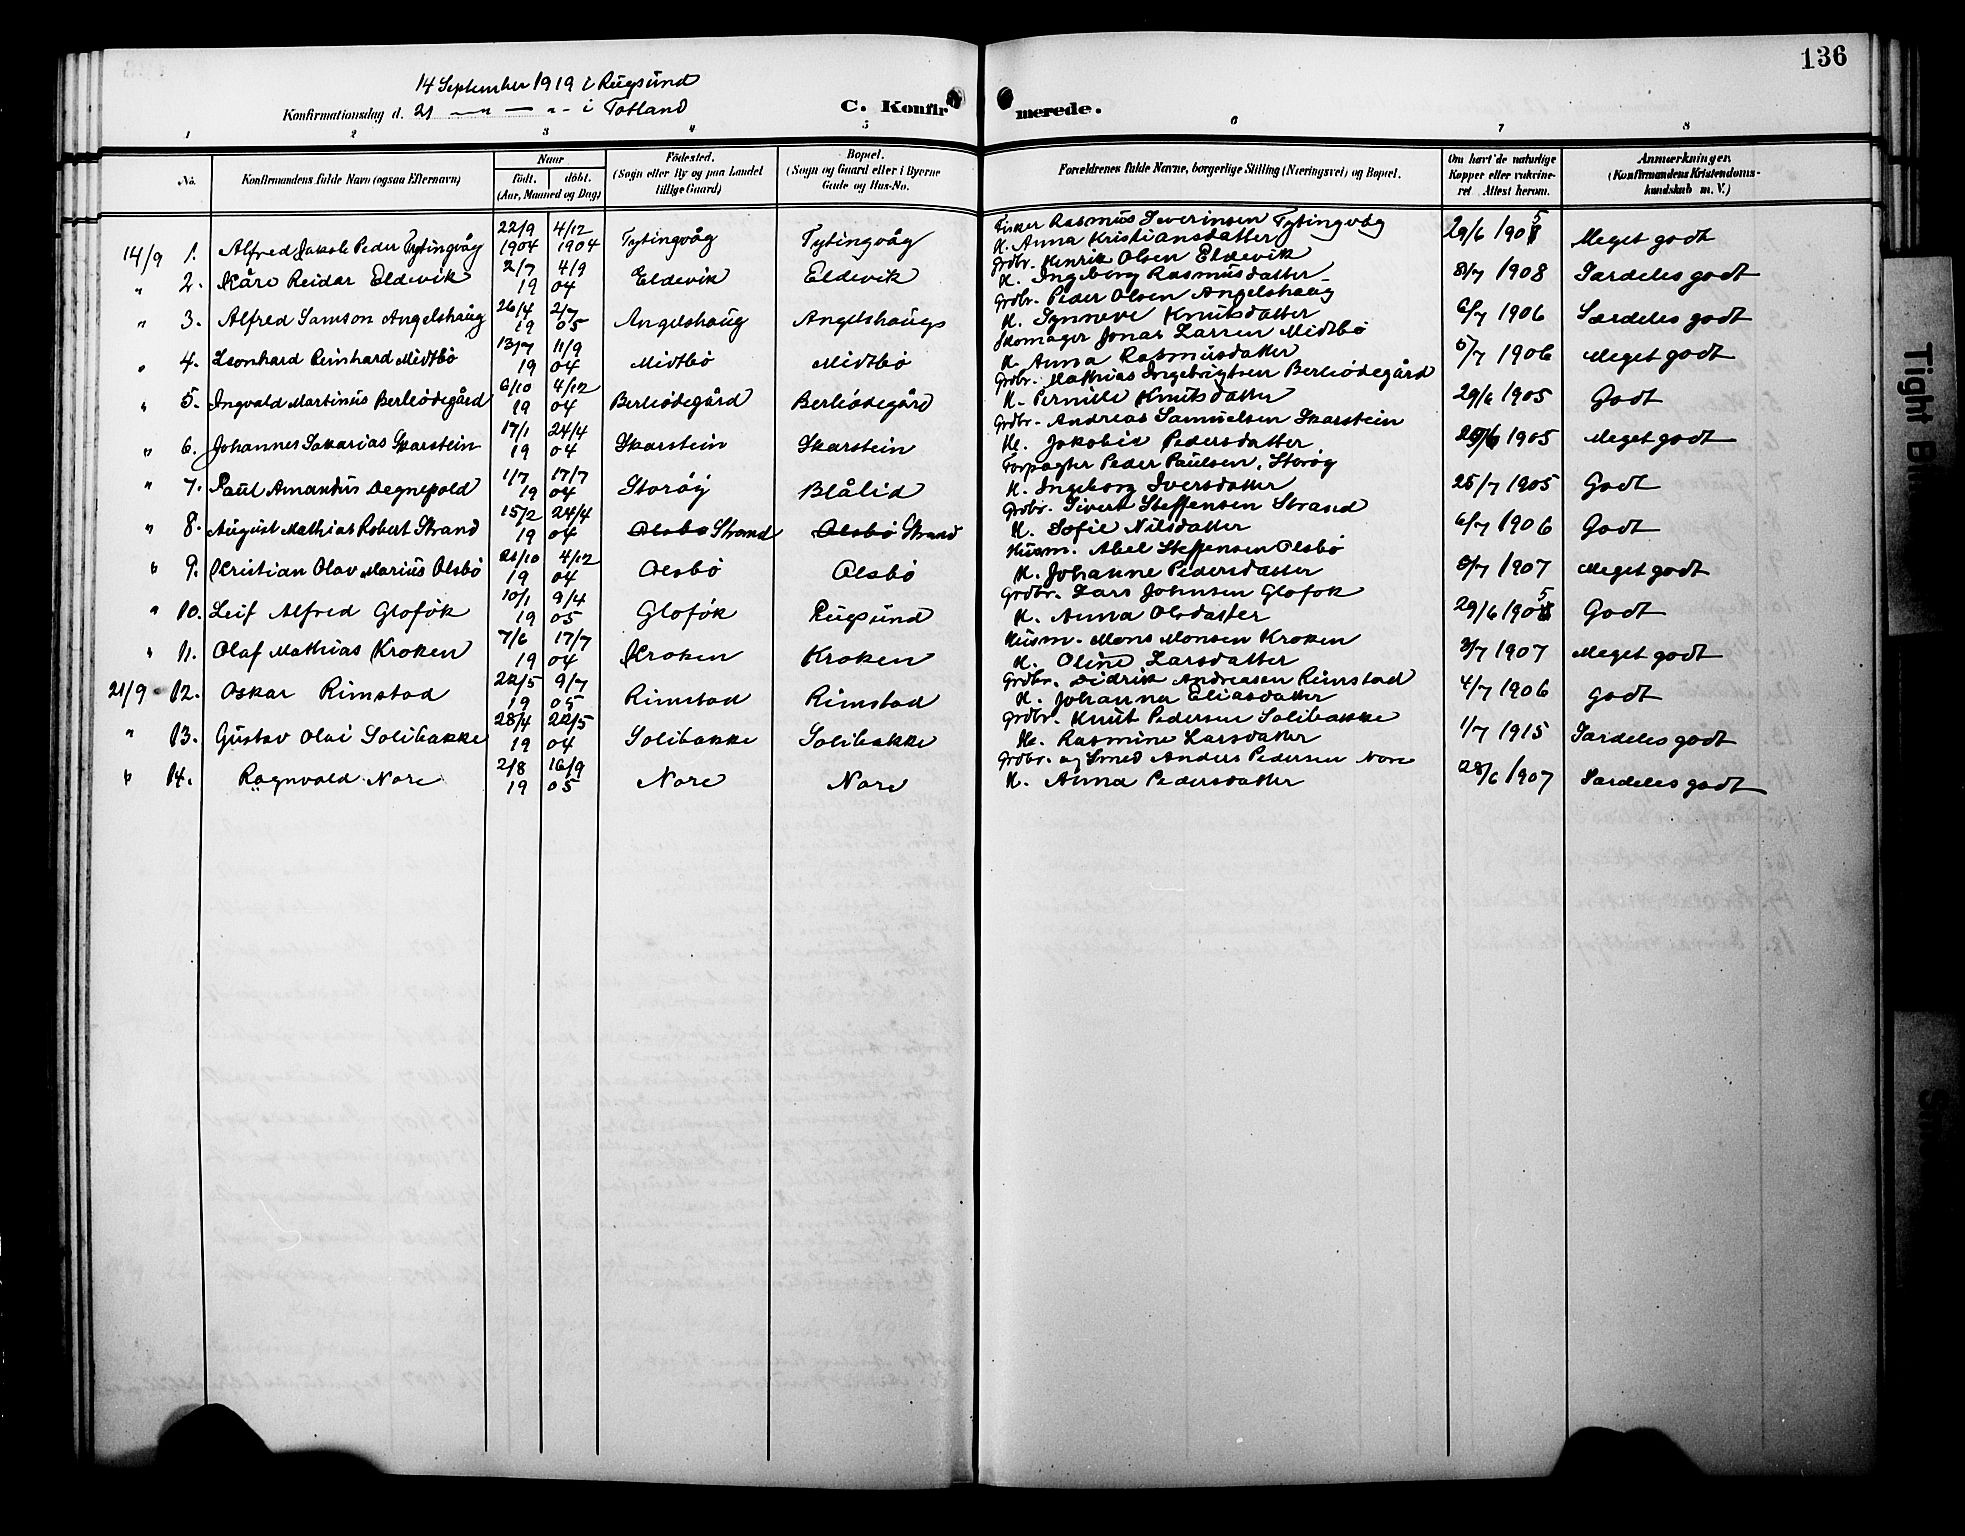 136
14 September 1919 i Rugsund
Konfirmationsdag d. 21 — " — " - i Totland
C. Konfirmerede.
1 2 3 4 5 6 7 8
No. Konfirmandens fulde Navn (ogsaa Efternavn) Naar født. døbt. (Aar, Maaned og Dag) Fødested. (Sogn eller By og paa Landet tillige Gaard) Bopæl. (Sogn og Gaard eller i Byerne Gade og Hus-No. Forældrenes fulde Navne, borgerlige Stilling (Næringsvei) og Bopæl. Om havt de naturlige Kopper eller vakcineret Attest herom. Anmærkninger. (Konfirmandens Kristendomskundskab m. V.)
14/9 1. Alfred Jakob Peder Tytingvåg 22/9 1904 4/12 1904 Tytingvåg Tytingvåg Fisker Rasmus Severinsen Tytingvåg 29/6 1905 Meget godt
H. Anna Kristiansdatter
" 2. Kåre Reidar Eldevik 2/7 4/9 1904 Eldevik Eldevik Grdbr. Henrik Olsen Eldevik 8/7 1908 Særdeles godt
H. Ingeborg Rasmusdatter
" 3. Alfred Samson Angelshaug 26/4 2/7 1905 Angelshaug Angelshaug Grdbr. Peder Olsen Angelshaug 6/7 1906 Særdeles godt
H. Synneve Knutsdatter
" 4. Leonhard Reinhard Midtbö 13/7 11/9 1904 Midtbö Midtbö Skomager Jonas Larsen Midtbö 5/7 1906 Meget godt
H. Anna Rasmusdatter
" 5. Ingvald Martinus Berleödegård 6/10 4/12 1904 Berleödegård Berleödegård Grdbr. Mathias Ingebrigtsen Berleödegård 29/6 1905 Godt
H. Pernille Knutsdatter
" 6. Johannes Sakarias Skarstein 17/1 24/4 1904 Skarstein Skarstein Grdbr. Andreas Samuelsen Skarstein 1905 Meget godt
H. Jakobie Pedersdatter
" 7. Paul Amandus Degnepold 1/7 17/7 1904 Storöy Blålid Forpagter Peder Paulsen, Storöy 25/7 1905 Godt
H. Ingeborg Iversdatter
" 8. August Mathias Robert Strand 15/2 24/4 1904 Olsbö Strand Olsbö Strand Grdbr. Sivert Steffensen Strand 6/7 1906 Godt
H. Sofie Nilsdatter
" 9. Kristian Olav Marius Olsbö 21/10 4/12 1904 Olsbö Olsbö Husm. Abel Steffensen Olsbö 3/7 1907 Meget godt
H. Johanne Pedersdatter
" 10. Leif Alfred Glofök 10/1 9/4 1905 Glofök Rugsund Grdbr. Lars Johnsen Glofök 29/6 1905 Godt
H. Anna Olsdatter
" 11. Olaf Mathias Kroken 7/6 17/7 1904 Kroken Kroken Husm. Mons Monsen Kroken 3/7 1907 Meget godt
H. Oline Larsdatter
21/9 12. Oskar Rimstad 22/5 9/7 1905 Rimstad Rimstad Grdbr. Didrik Andreasen Rimstad 4/7 1906 godt
H. Johanna Eliasdatter
" 13. Gustav Olai Solibakke 28/4 22/5 1904 Solibakke Solibakke Grdbr. Knut Pedersen Solibakke 1/7 1915 Særdeles godt
H. Rasmine Larsdatter
" 14. Ragnvald Nore 2/8 16/9 1905 Nore Nore Grdbr. og Smed Anders Pedersen Nore 28/6 1907 Særdeles godt
H. Anna Pedersdatter